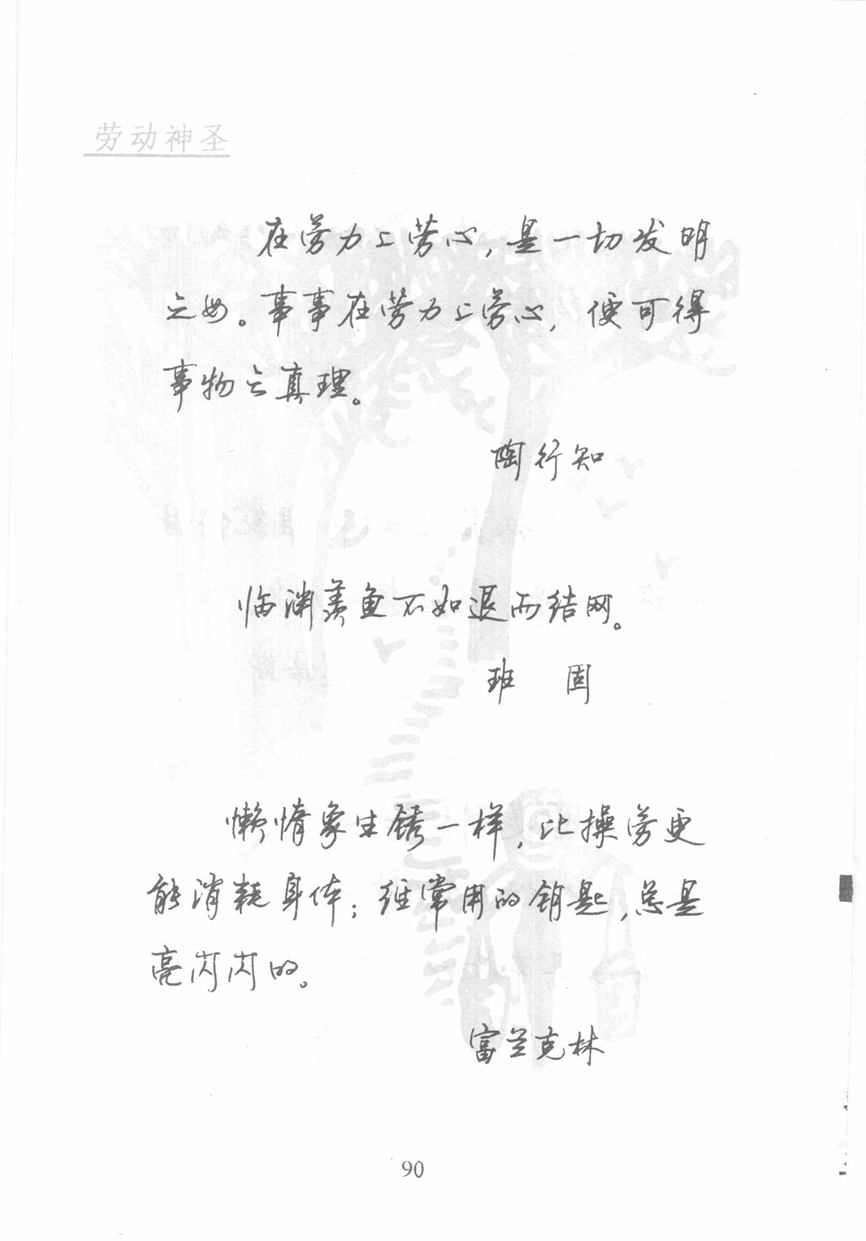 劳动神圣
在劳力上劳心，是一切发明
之母。事事在劳力上劳心，便可得
事物之真理。
陶行知
临渊羡鱼不如退而结网。
班 固
懒惰象生锈一样，比操劳更
能消耗身体；经常用的钥匙，总是
亮闪闪的。
富兰克林
90